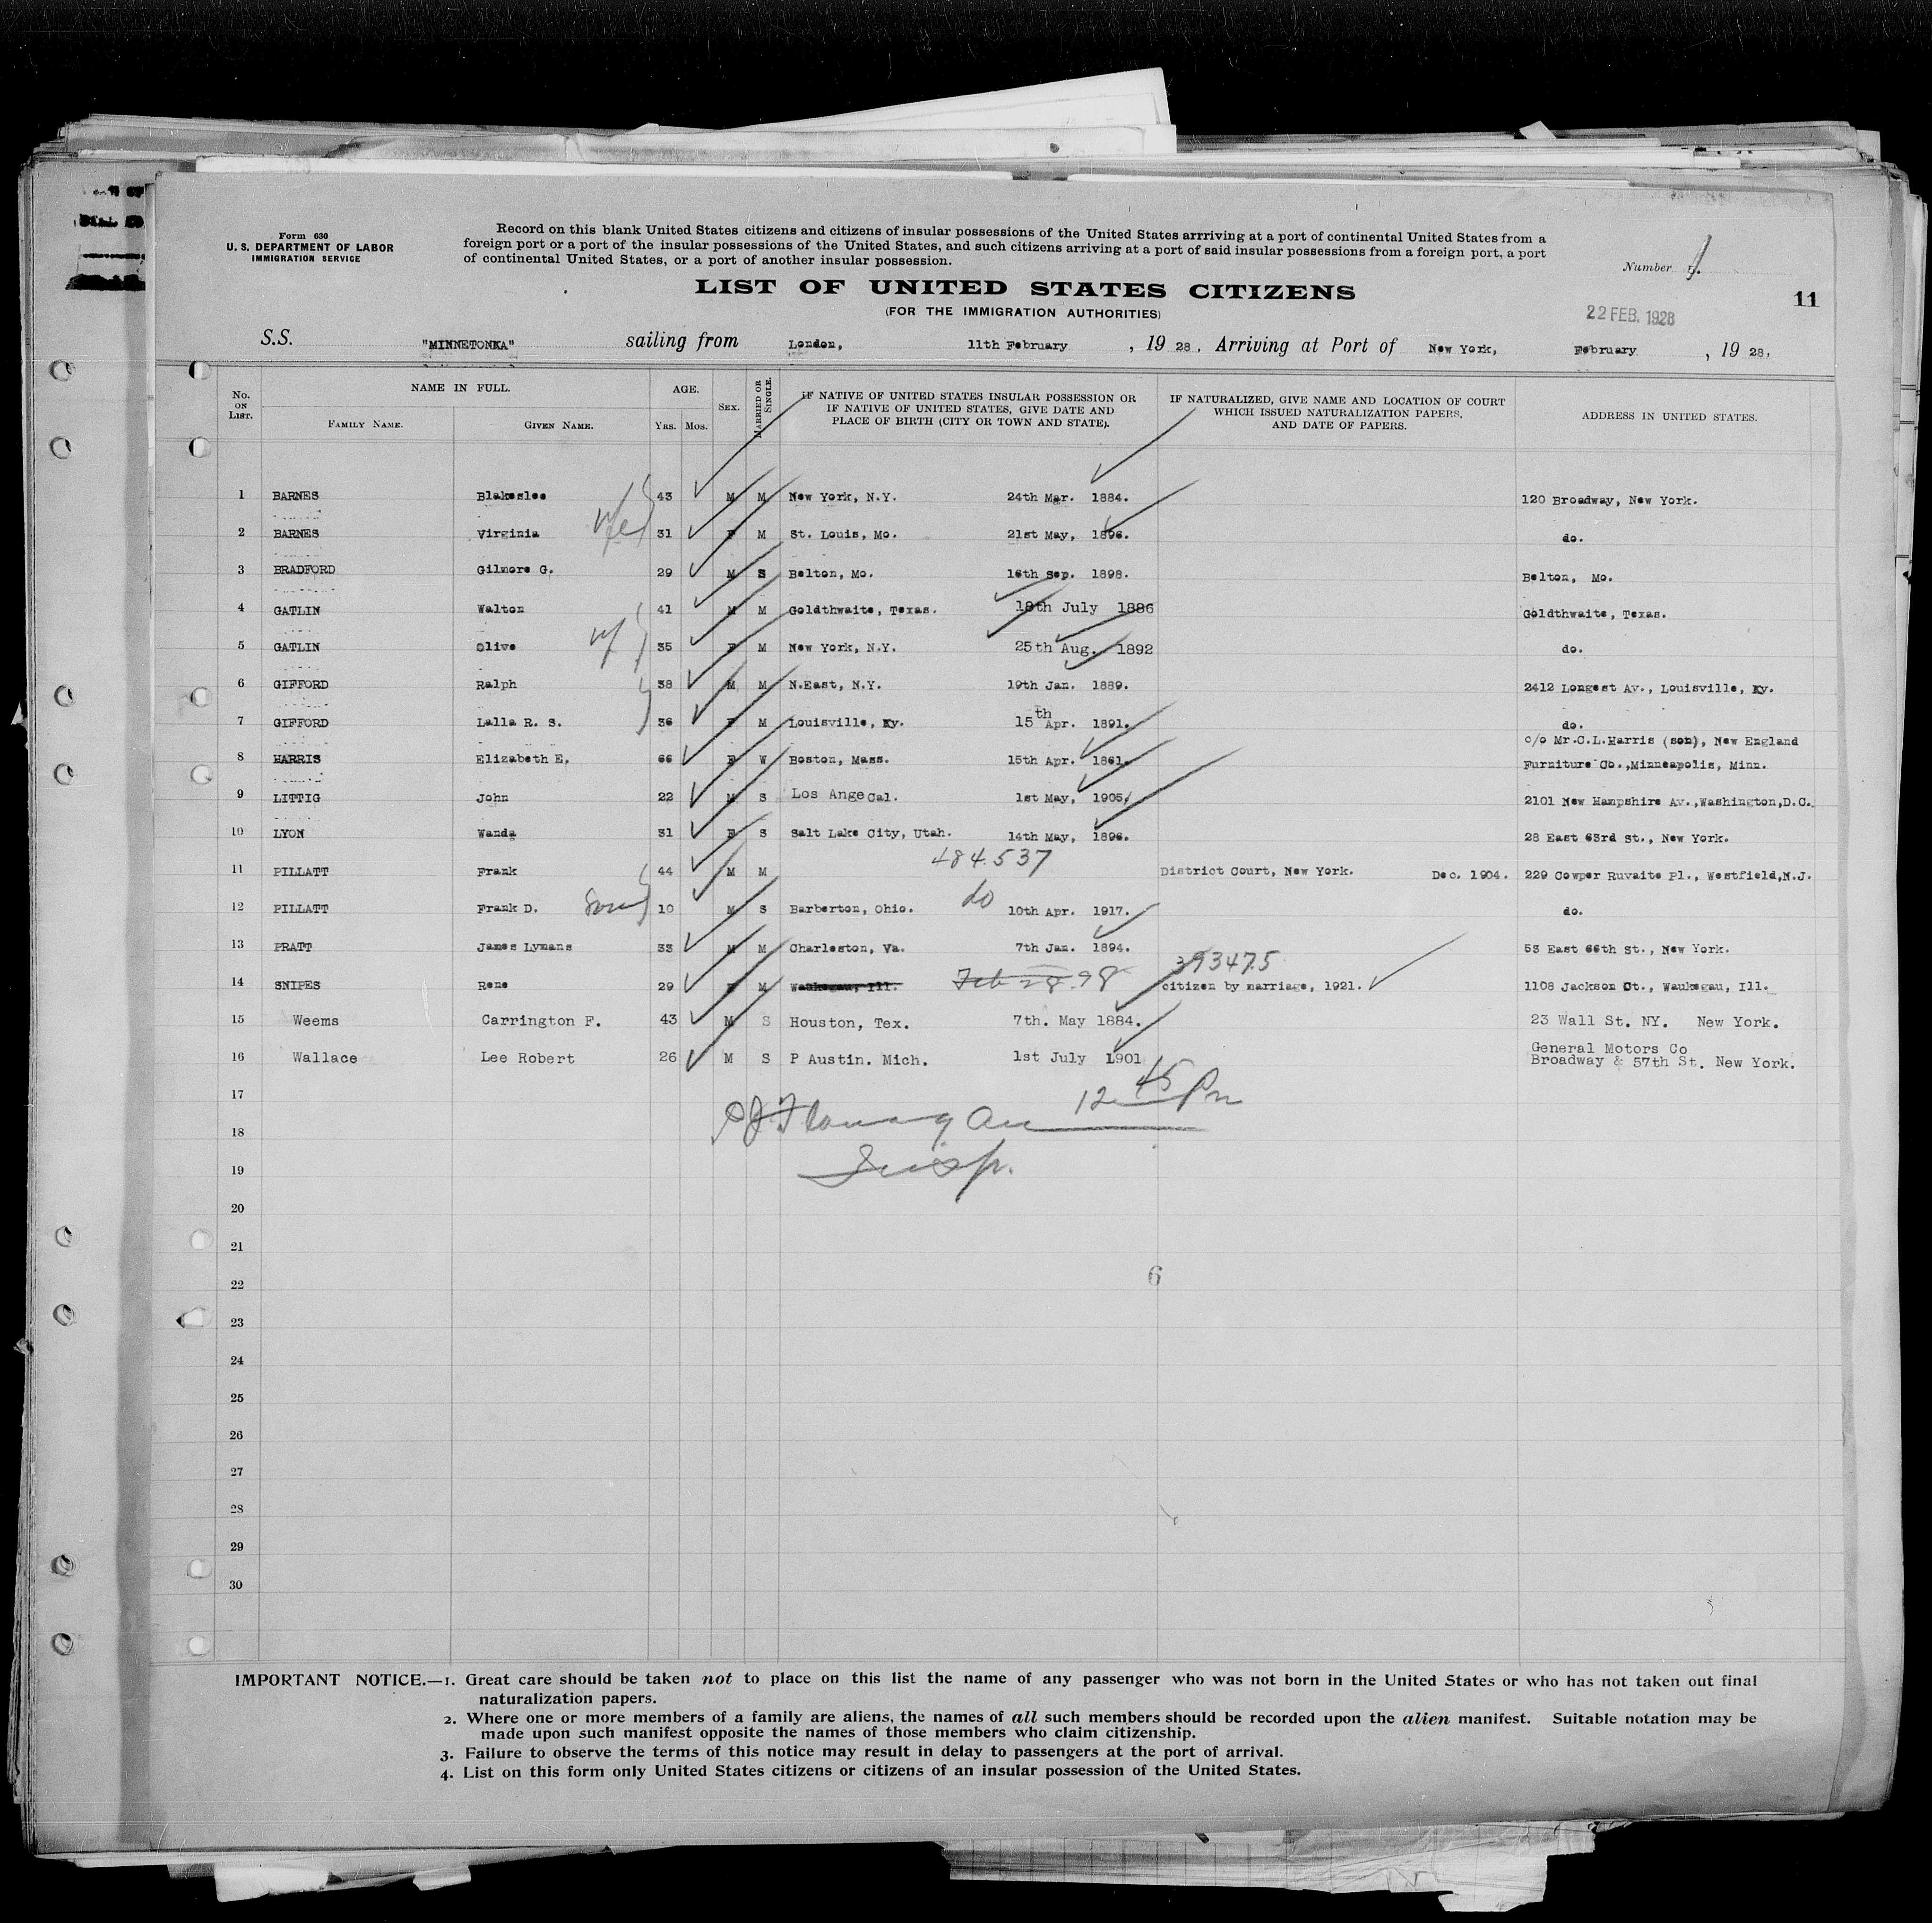 Form 630
U. S. DEPARTMENT OF LABOR
IMMIGRATION SERVICE
Record on this blank United States citizens and citizens of insular possessions of the United States arrriving at a port of continental United States from a
foreign port or a port of the insular possessions of the United States, and such citizens arriving at a port of said insular possessions from a foreign port, a port
of continental United States, or a port of another insular possession.
Number
LIST OF UNITED STATES CITIZENS
11
(FOR THE IMMIGRATION AUTHORITIES)
22 FEB. 1928
S.S. "MINNETONKA" sailing from London, 11th February , 19 28, Arriving at Port of New York, February , 19 28,
No. ON LIST. NAME IN FULL. FAMILY NAME. GIVEN NAME. AGE. YRS. MOS. SEX. MARRIED OR SINGLE. IF NATIVE OF UNITED STATES INSULAR POSSESSION OR IF NATIVE OF UNITED STATES, GIVE DATE AND PLACE OF BIRTH (CITY OR TOWN AND STATE). IF NATURALIZED, GIVE NAME AND LOCATION OF COURT WHICH ISSUED NATURALIZATION PAPERS, AND DATE OF PAPERS. ADDRESS IN UNITED STATES.
1 BARNES Blakeslee 43 M M New York, N.Y. 24th Mar. 1884. 120 Broadway, New York.
2 BARNES Virginia wife 31 F M St. Louis, Mo. 21st May, 1896. do.
3 BRADFORD Gilmore G. 29 M S Belton, Mo. 16th Sep. 1898. Belton, Mo.
4 GATLIN Walton 41 M M Goldthwaite, Texas. 18th July 1886 Goldthwaite, Texas.
5 GATLIN Olive w/ 35 F M New York, N.Y. 25th Aug. 1892 do.
6 GIFFORD Ralph 38 M M N.East, N.Y. 19th Jan. 1889. 2412 Longest Av., Louisville, Ky.
7 GIFFORD Lalla R. S. 36 F M Louisville, Ky. 15th Apr. 1891. do.
8 HARRIS Elizabeth E. 66 F W Boston, Mass. 15th Apr. 1861. c/o Mr.C.L.Harris (son), New England
Furniture Co.,Minneapolis, Minn.
9 LITTIG John 22 M S Los Ange Cal. 1st May, 1905, 2101 New Hampshire Av.,Washington,D.C.
10 LYON Wanda 31 F S Salt Lake City, Utah. 14th May, 1896. 28 East 63rd St., New York.
484.537
11 PILLATT Frank 44 M M District Court, New York. Dec. 1904. 229 Cowper Ruvaite Pl., Westfield,N.J.
12 PILLATT Frank D. Son 10 M S Barberton, Ohio. do 10th Apr. 1917. do.
13 PRATT James Lymans 33 M M Charleston, Va. 7th Jan. 1894. 53 East 66th St., New York.
393475
14 SNIPES Rene 29 F M Waukegau, Ill. Feb 28.98 citizen by marriage, 1921. 1108 Jackson Ct., Waukegau, Ill.
15 Weems Carrington F. 43 M S Houston, Tex. 7th. May 1884. 23 Wall St. NY. New York.
16 Wallace Lee Robert 26 M S P Austin. Mich. 1st July 1901 General Motors Co
Broadway & 57th St. New York.
17 12 45 Pm
18
19 Insp.
20
21
22 6
23
24
25
26
27
28
29
30
IMPORTANT NOTICE.—1. Great care should be taken not to place on this list the name of any passenger who was not born in the United States or who has not taken out final
naturalization papers.
2. Where one or more members of a family are aliens, the names of all such members should be recorded upon the alien manifest. Suitable notation may be
made upon such manifest opposite the names of those members who claim citizenship.
3. Failure to observe the terms of this notice may result in delay to passengers at the port of arrival.
4. List on this form only United States citizens or citizens of an insular possession of the United States.